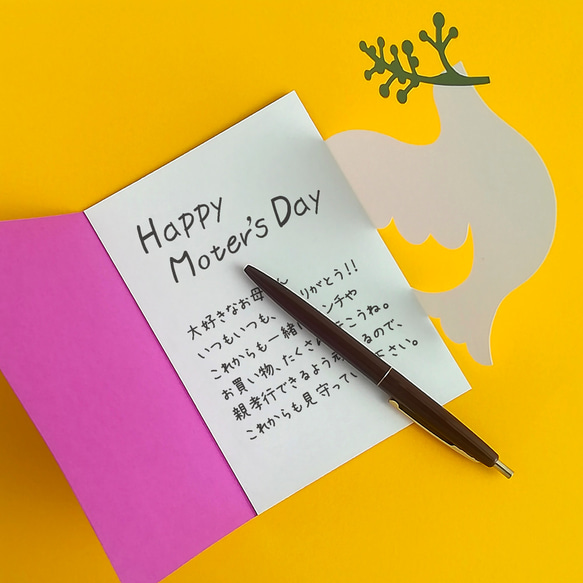 Happy
Moter's Day
大好きなお母 りがとう!!
いつもいつも、 ンチや
これからも一緒 こうね。
お買い物、たくさ るので、
親孝行できるよう 下さい。
これからも見守ってい